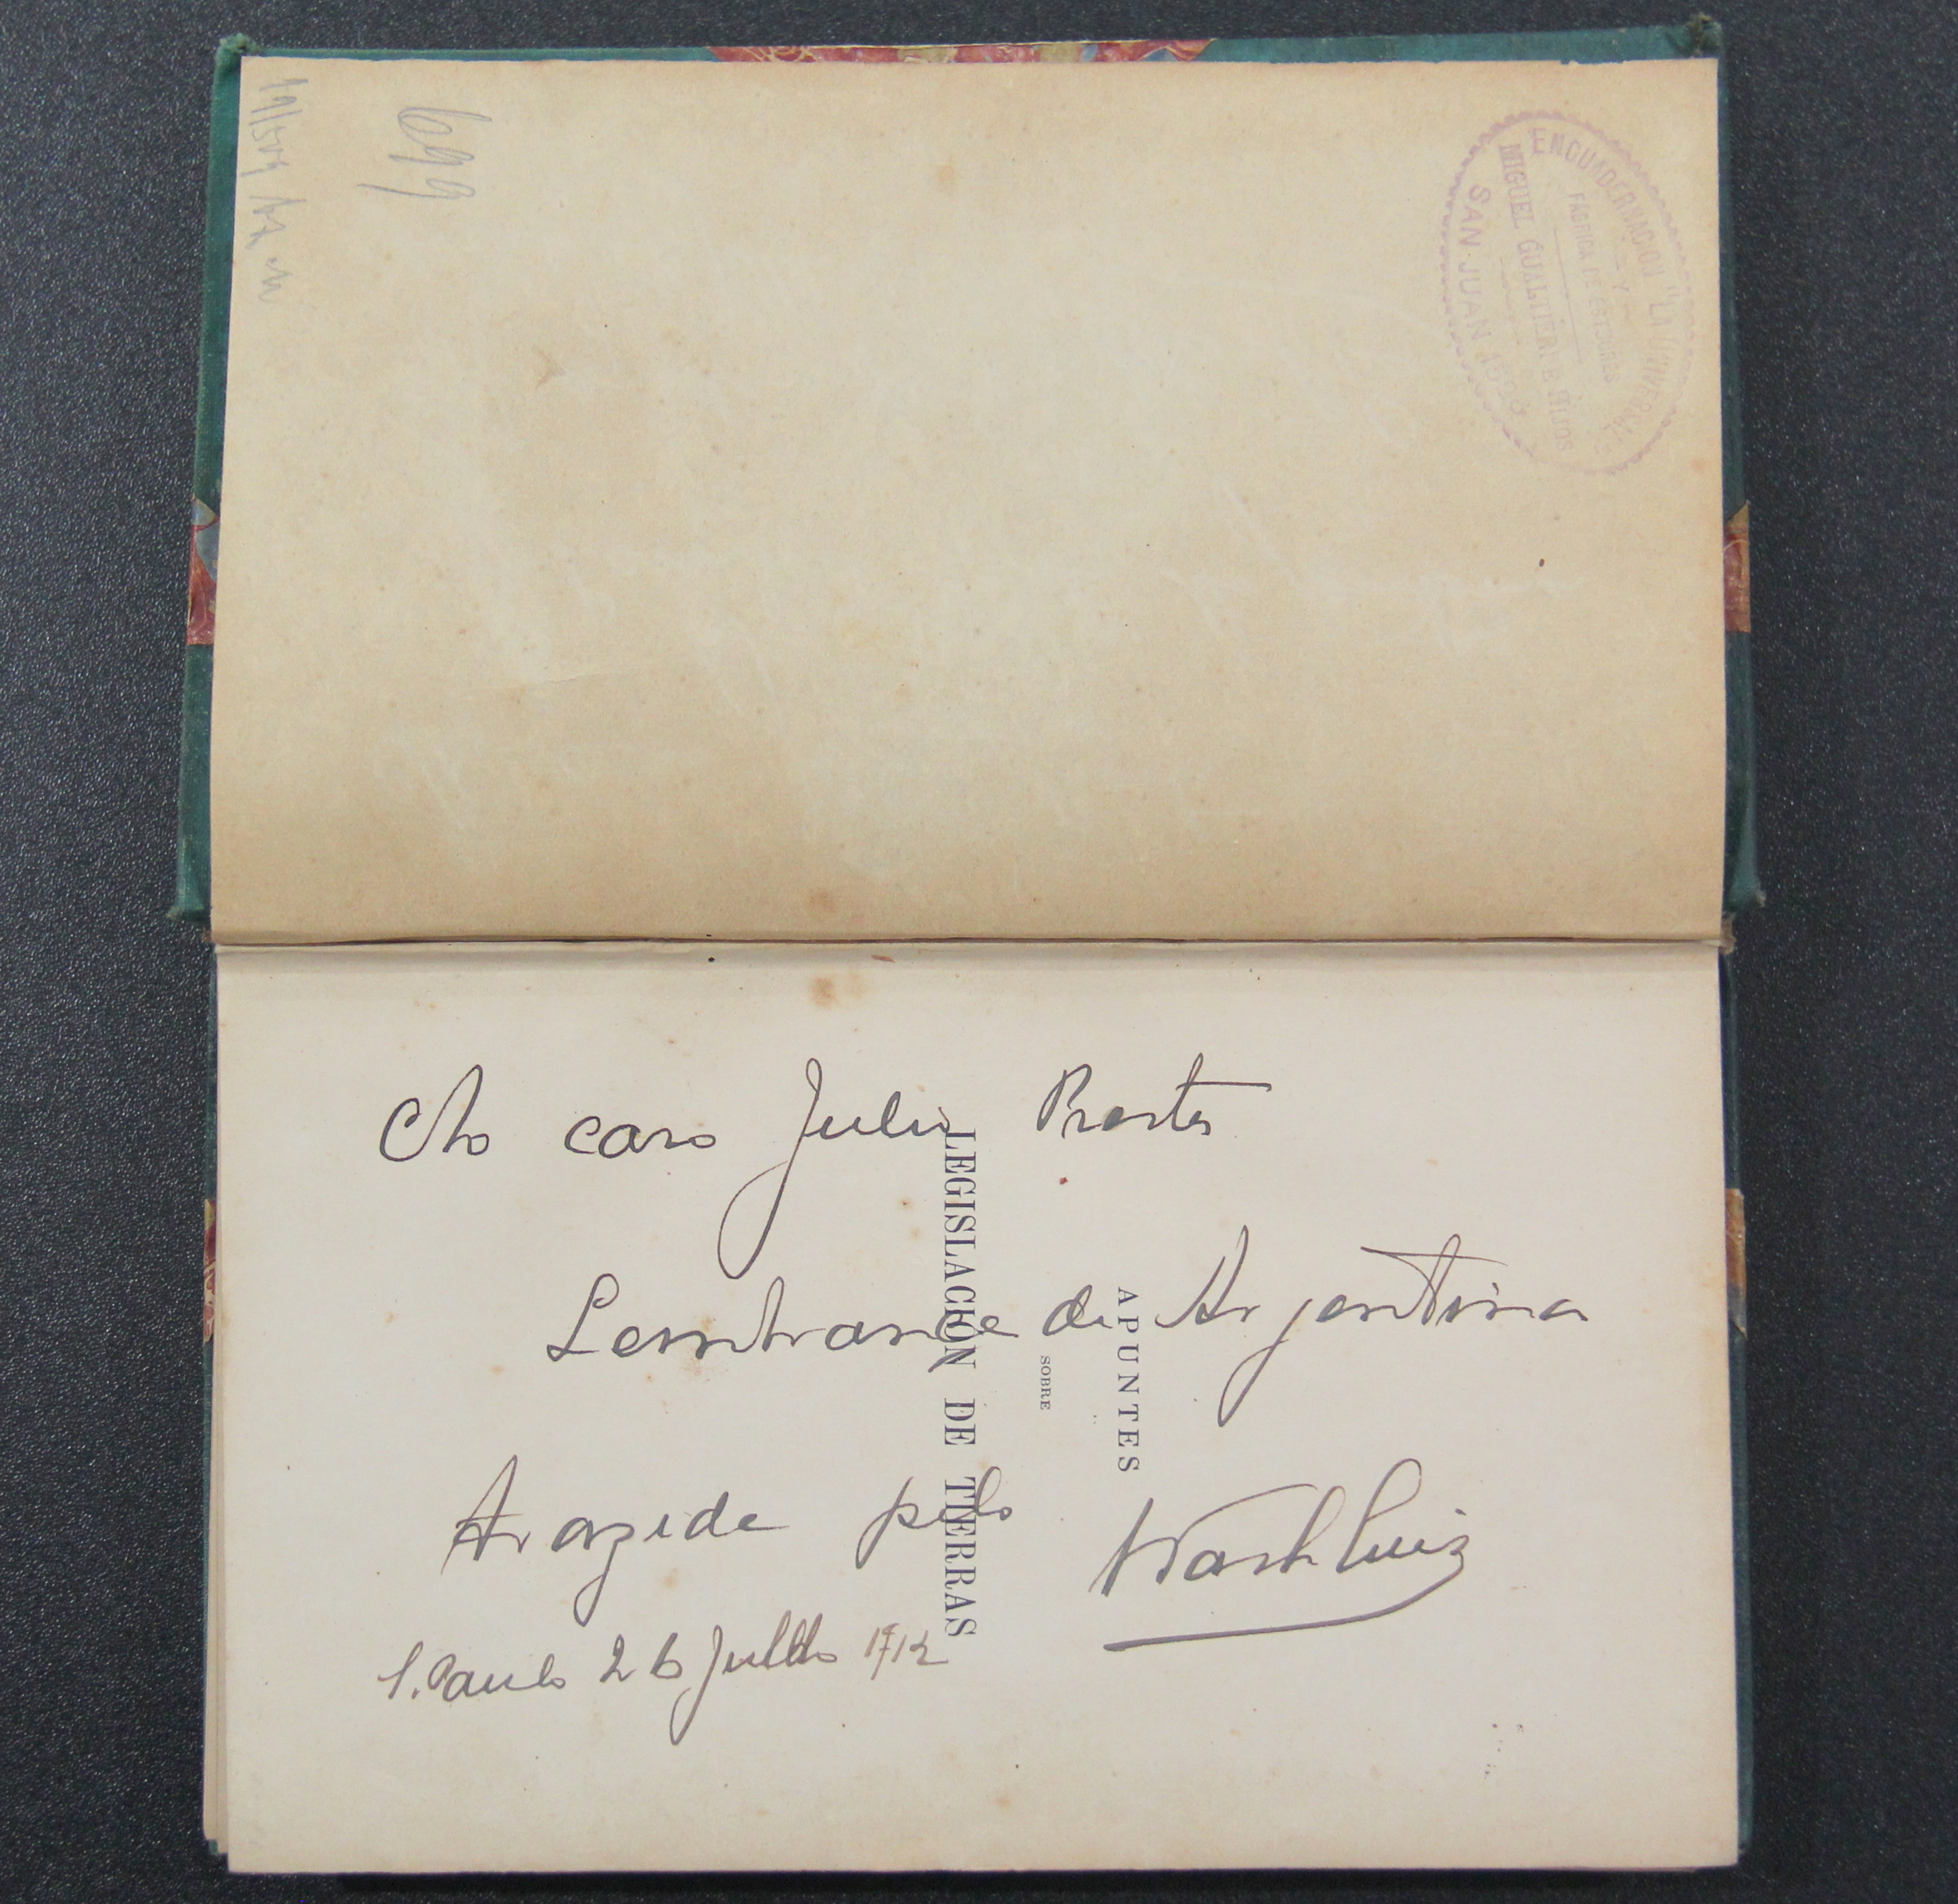 699
ENCUADERNACION "LA UNIVERSAL"
Y
FABRICA DE ESTUCHES
MIGUEL GUALTIERI E HIJOS
SAN JUAN
Ao caro Julio Prestes
Lembrança da Argentina
Arazida pelo Wash Luiz
S. Paulo 26 Julho 1912
APUNTES
SOBRE
LEGISLACIÓN DE TIERRAS